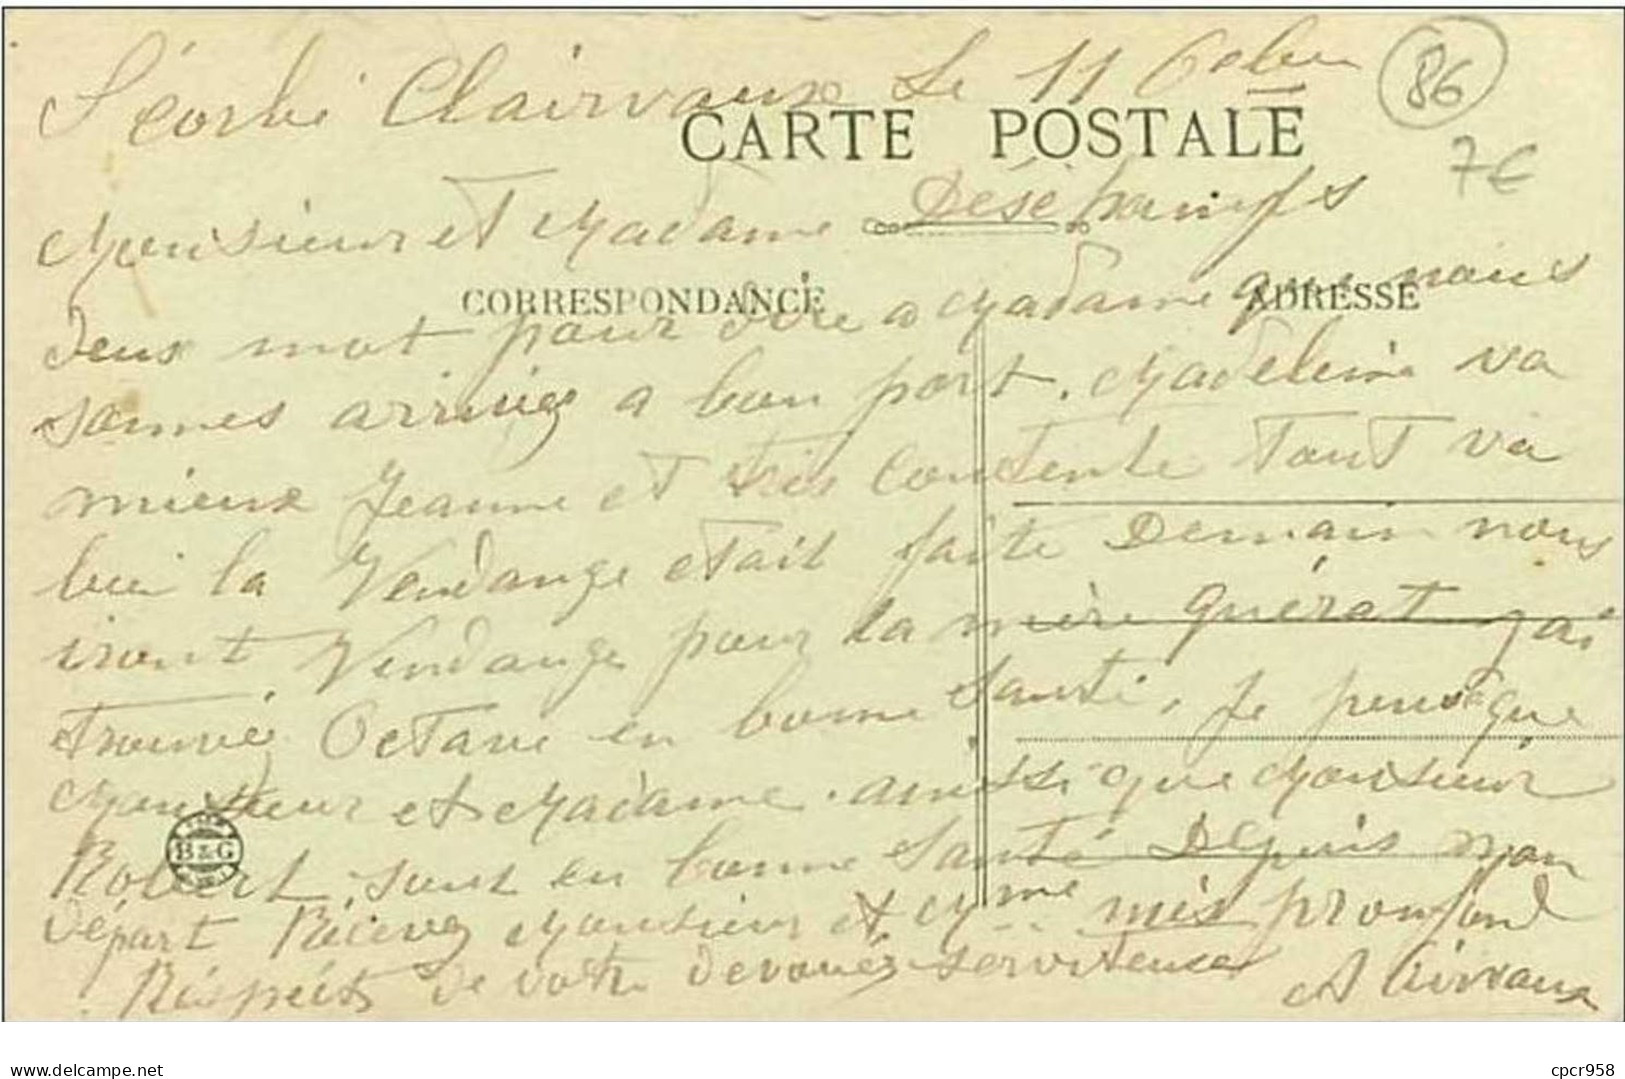 Scorbé Clairvaux Le 11 Octobre
86
7€
CARTE POSTALE
Monsieur et Madame Déséchamps
CORRESPONDANCE
ADRESSE
deux mot pour dire a Madame que nous
sommes arrivés a bon port. Madeleine va
mieux Jeanne et très contente Tout va
bien la Vendange etait faite Demain nous
iront Vendange pour la mère Guérat j'ai
trouvé Octave en bonne santé, Je pense que
Monsieur et Madame. ainssi que Monsieur
B&G
Robert, sont en bonne Santé Depuis mon
départ Récevez Monsieur et Mme mis profond
Réspécts de votre devouée servitense
A Clairvaux
delcampe.net
cpcr958